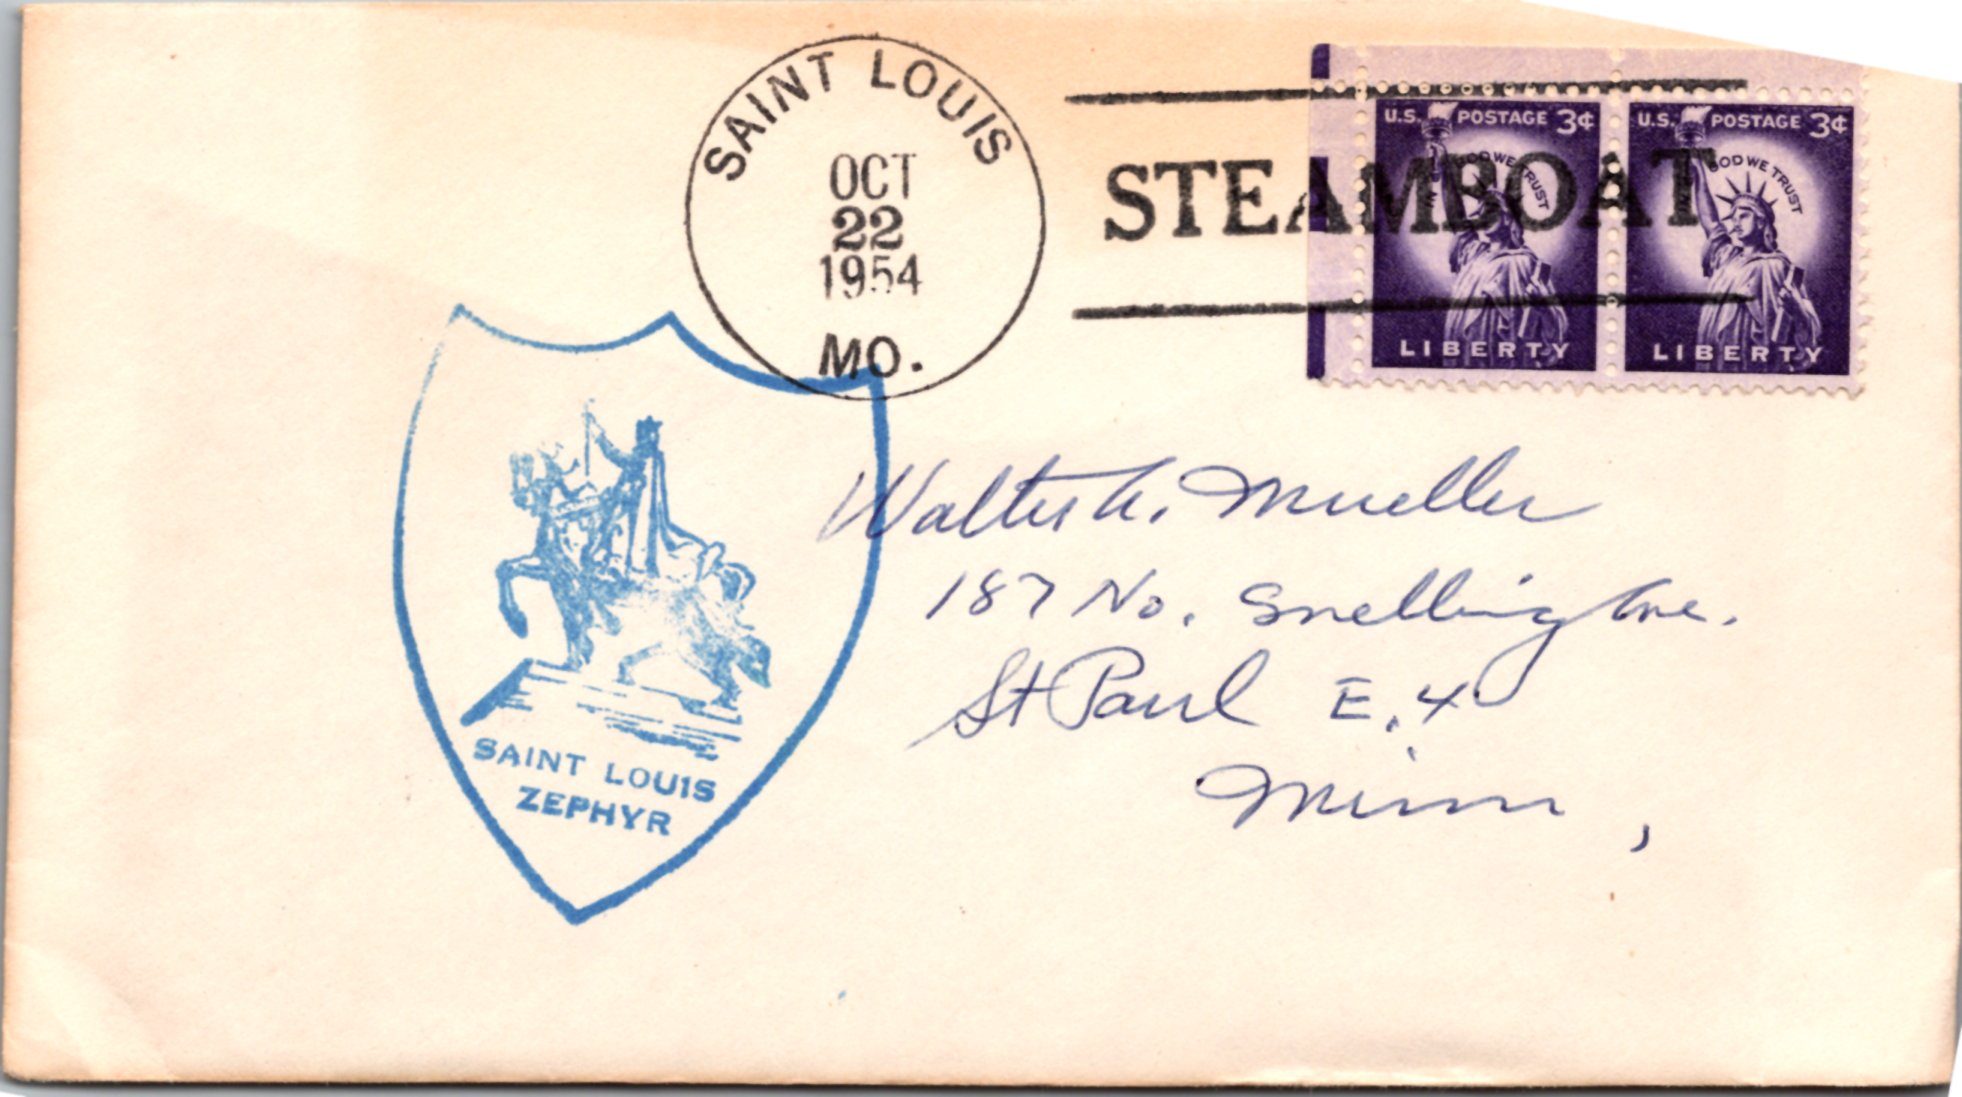 SAINT LOUIS
OCT
22
1954
MO.
STEAMBOAT
U.S. POSTAGE 3¢
IN GOD WE TRUST
LIBERTY
U.S. POSTAGE 3¢
GOD WE TRUST
LIBERTY
SAINT LOUIS
ZEPHYR
Walter A. Mueller
187 No. Snelling Ave.
St Paul E. 4
Minn,